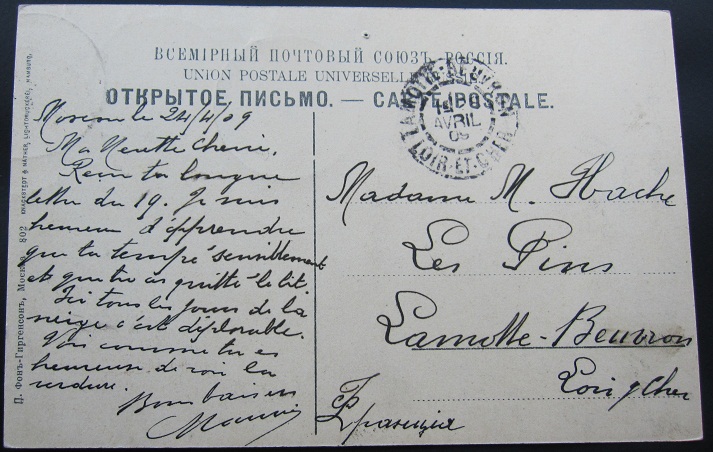 ВСЕМІРНЫЙ ПОЧТОВЫЙ СОЮЗЪ. РОССІЯ.
UNION POSTALE UNIVERSELLE
ОТКРЫТОЕ ПИСЬМО. — CARTE POSTALE.
Moscou le 24/4/09
Ma Nenette Cherie,
Recu ta longue
lettre du 19. Je suis
heureux d'apprendre
que tu sensiblement
et que tu as quitté le lit.
Ici tous les jours de la
neige c'est déplorable.
comme tu es
heureuse de voir la
verdure.
Bons baisers
Maurice
Madame M. Hache
Les Pins
Lamotte-Beuvron
Loir & Cher
Франція
LAMOTTE-BEUVRON
AVRIL
09
LOIR-ET-CHER
П. Фонъ-Гиргенсонъ, Москва. 802 KNACKSTEDT & NÄTHER, LICHTDRUCKEREI, HAMBURG.